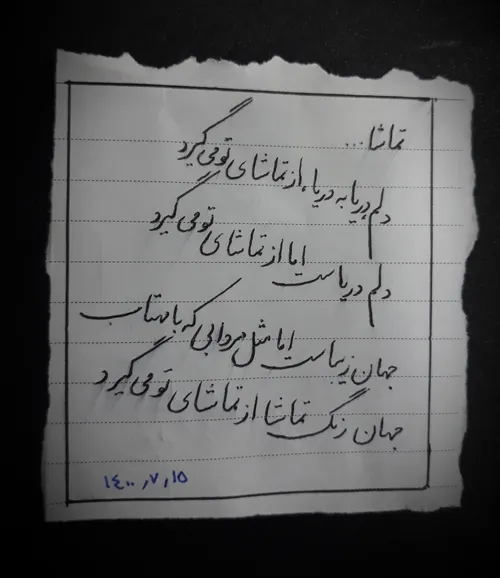 تماشا...
دلم دریا به دریا، از تماشای تو می گیرد
دلم دریاست اما از تماشای تو می گیرد
جهان زیباست اما مثل مردابی که با مهتاب
جهان رنگ تماشا از تماشای تو می گیرد
۱۴۰۰،۷،۱۵